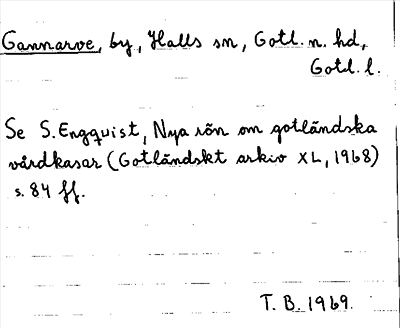 Gannarve, by, Halls sn, Gotl. n. hd,
Gotl. l.
Se S. Engquist, Nya rön om gotländska
vårdkasar (Gotländskt arkiv XL, 1968)
s. 84 ff.
T. B. 1969.